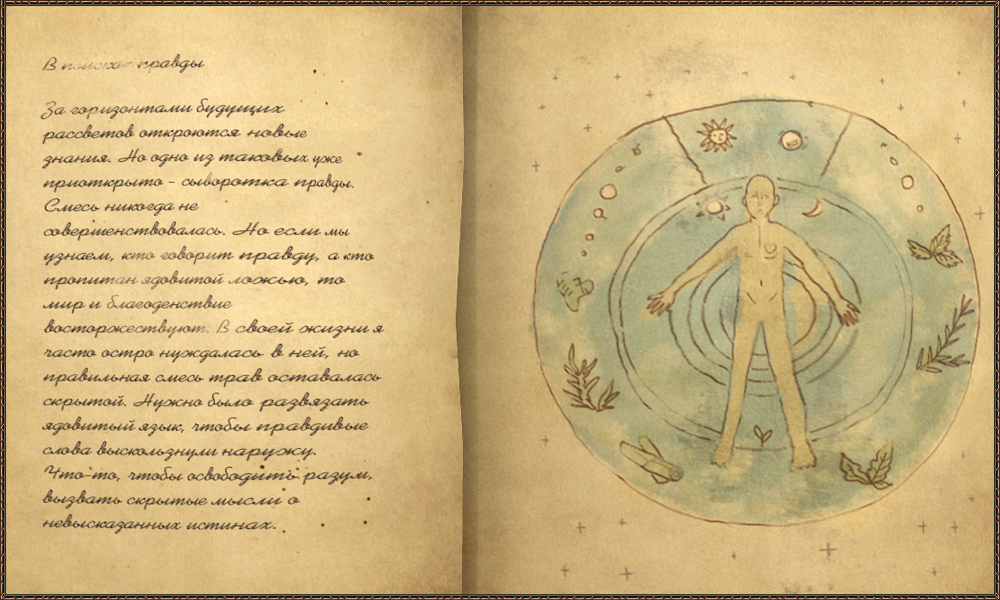 В поисках правды
За горизонтами будущих
рассветов откроются новые
знания. Но одно из таковых уже
приоткрыто - сыворотка правды.
Смесь никогда не
совершенствовалась. Но если мы
узнаем, кто говорит правду, а кто
пропитан ядовитой ложью, то
мир и благоденствие
восторжествуют. В своей жизни я
часто остро нуждалась в ней, но
правильная смесь трав оставалась
скрытой. Нужно было развязать
ядовитый язык, чтобы правдивые
слова выскользнули наружу.
Что-то, чтобы освободить разум,
вызвать скрытые мысли о
невысказанных истинах.